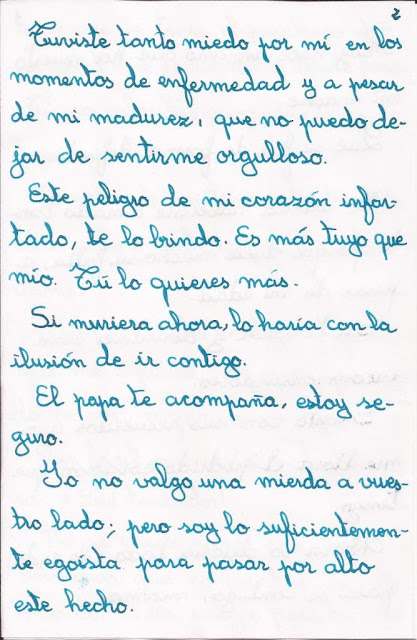 2
Tuviste tanto miedo por mí en los
momentos de enfermedad y a pesar
de mi madurez, que no puedo de-
jar de sentirme orgulloso.
Este peligro de mi corazón infar-
tado, te lo brindo. Es más tuyo que
mío. Tú lo quieres más.
Si muriera ahora, lo haría con la
ilusión de ir contigo.
El papa te acompaña, estoy se-
guro.
Yo no valgo una mierda a vues-
tro lado; pero soy lo suficientemen-
te egoísta para pasar por alto
este hecho.